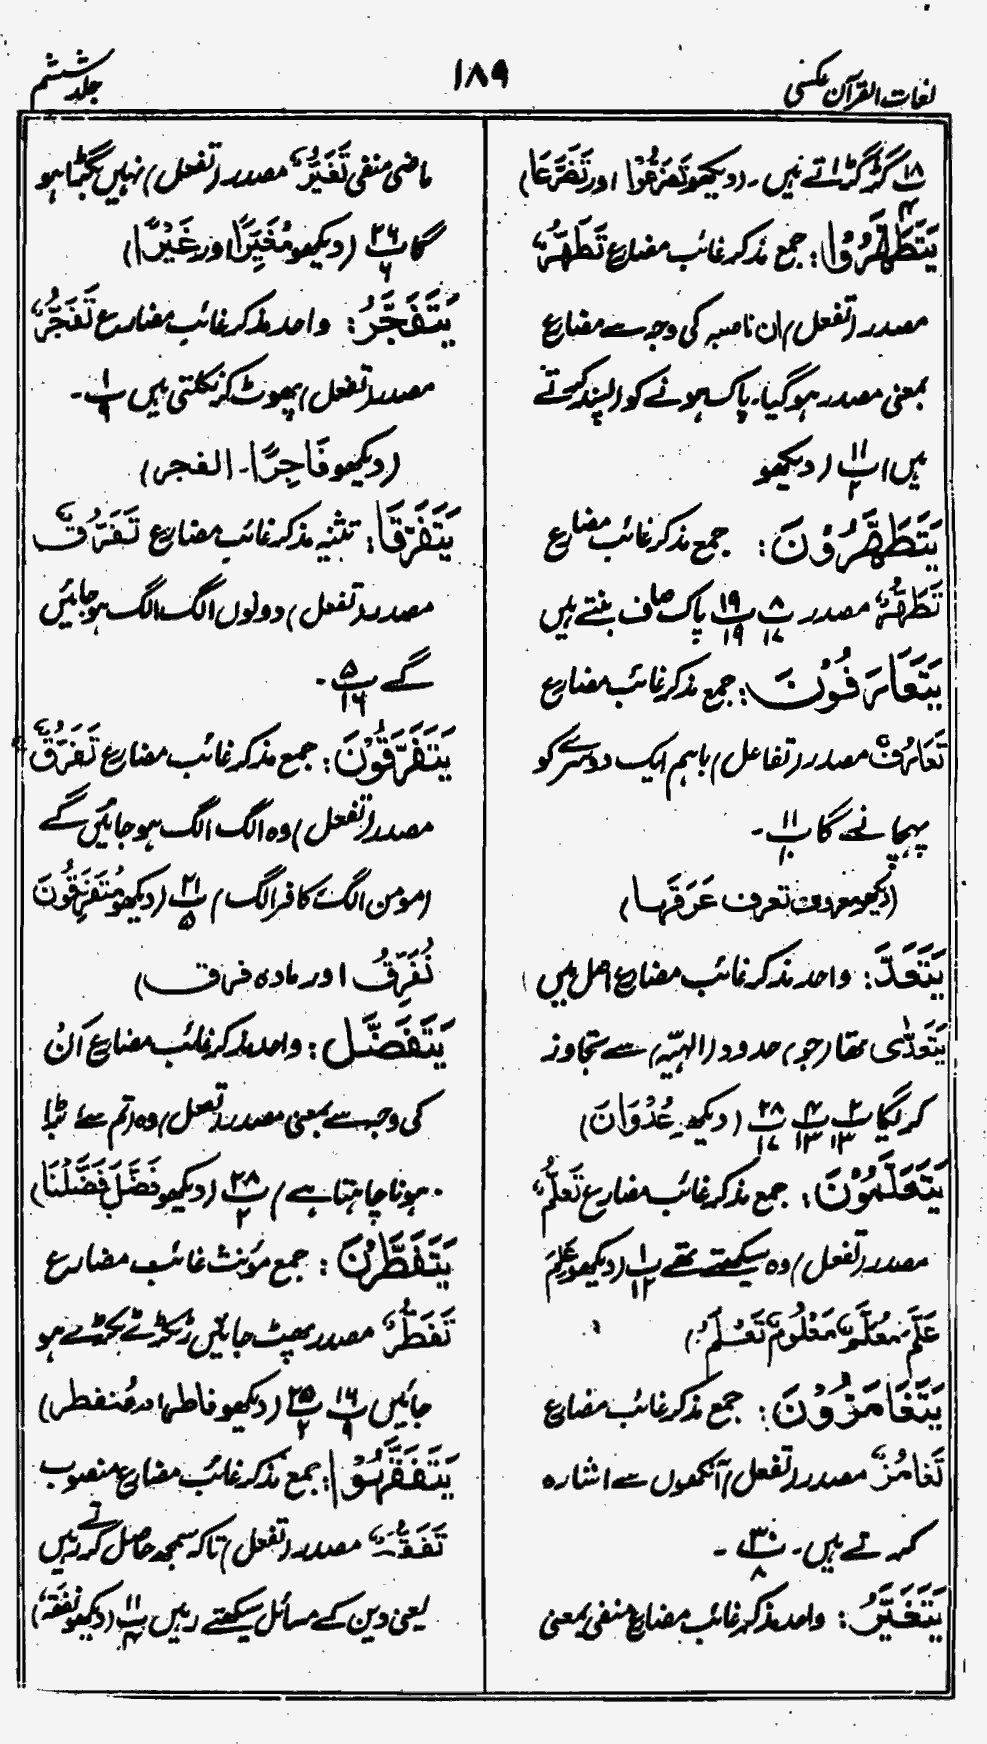 لغات القرآن عکسی
۱۸۹
جلد ششم
پ۱۸/۴ گڑگڑاتے ہیں۔ (دیکھو تَضَرَّعُوْا اور تَضَرُّعَا)
یَتَطَهَّرُوْا: جمع مذکر غائب مضارع تَطَهُّرٌ
مصدر (تفعل) ان ناصبہ کی وجہ سے مضارع
بمعنی مصدر ہوگیا۔ پاک ہونے کو (پسند کرتے
ہیں) پ۱۱/۲ (دیکھو
یَتَطَهَّرُوْنَ: جمع مذکر غائب مضارع
تَطَهُّرٌ مصدر پ۸/۱۷ پ۱۹/۱۹ پاک صاف بنتے ہیں
یَتَعَارَفُوْنَ: جمع مذکر غائب مضارع
تَعَارُفٌ مصدر (تفاعل) باہم ایک دوسرے کو
پہچانے گا پ۱۱/۱۰۔
(دیکھو معروف تعرف عَرَفَہا)
یَتَعَدَّ: واحد مذکر غائب مضارع اصل میں
یَتَعَدّٰی تھا (جو) حدود (الہیّہ) سے متجاوز
کریگا پ۲/۱۳ پ۴/۱۳ پ۲۸/۱۷ (دیکھو عُدْوَانَ)
یَتَعَلَّمُوْنَ: جمع مذکر غائب مضارع تَعَلُّمٌ
مصدر (تفعل) وہ سیکھتے تھے پ۱/۱۲ (دیکھو عَلِمَ
عَلَّمَ مُعَلَّمٌ مَعْلُوْمٌ تَعْلَمُ)
یَتَغَامَزُوْنَ: جمع مذکر غائب مضارع
تَغَامُزٌ مصدر (تفعل) آنکھوں سے اشارہ
کرتے ہیں۔ پ۳۰/۸۔
یَتَغَیَّرُ: واحد مذکر غائب مضارع منفی بمعنی
ماضی منفی تَغَیُّرٌ مصدر (تفعل) نہیں بگڑا ہو
گا پ۲۶/۶ (دیکھو مُغَیِّرًا اور غَیْرًا)
یَتَفَجَّرُ: واحد مذکر غائب مضارع تَفَجُّرٌ
مصدر (تفعل) پھوٹ کر نکلتی ہیں پ۱/۹۔
(دیکھو فَاجِرًا۔ الفجر)
یَتَفَرَّقَا: تثنیہ مذکر غائب مضارع تَفَرُّقٌ
مصدر (تفعل) دونوں الگ الگ ہو جائیں
گے پ۵/۱۶۔
یَتَفَرَّقُوْنَ: جمع مذکر غائب مضارع تَفَرُّقٌ
مصدر (تفعل) وہ الگ الگ ہو جائیں گے
(مومن الگ کافر الگ) پ۲۱/۵ (دیکھو مُتَفَرِّقُوْنَ
نُفَرِّقُ اور مادہ فرق)
یَتَفَضَّلَ: واحد مذکر غائب مضارع اَنْ
کی وجہ سے بمعنی مصدر (تفعل) وہ (تم سے بڑا
ہونا چاہتا ہے) پ۲۸/۲ (دیکھو فَضَّلَ فَضَّلْنَا)
یَتَفَطَّرْنَ: جمع مؤنث غائب مضارع
تَفَطُّرٌ مصدر پھٹ جائیں ٹکڑے ٹکڑے ہو
جائیں پ۱۶/۹ پ۲۵/۲ (دیکھو فاطر اور مُنفطر)
یَتَفَقَّهُوْا: جمع مذکر غائب مضارع منصوب
تَفَقُّهٌ مصدر (تفعل) تاکہ سمجھ حاصل کرتے رہیں
یعنی دین کے مسائل سیکھتے رہیں پ۱۱/۴ (دیکھو نَفْقَهُ)